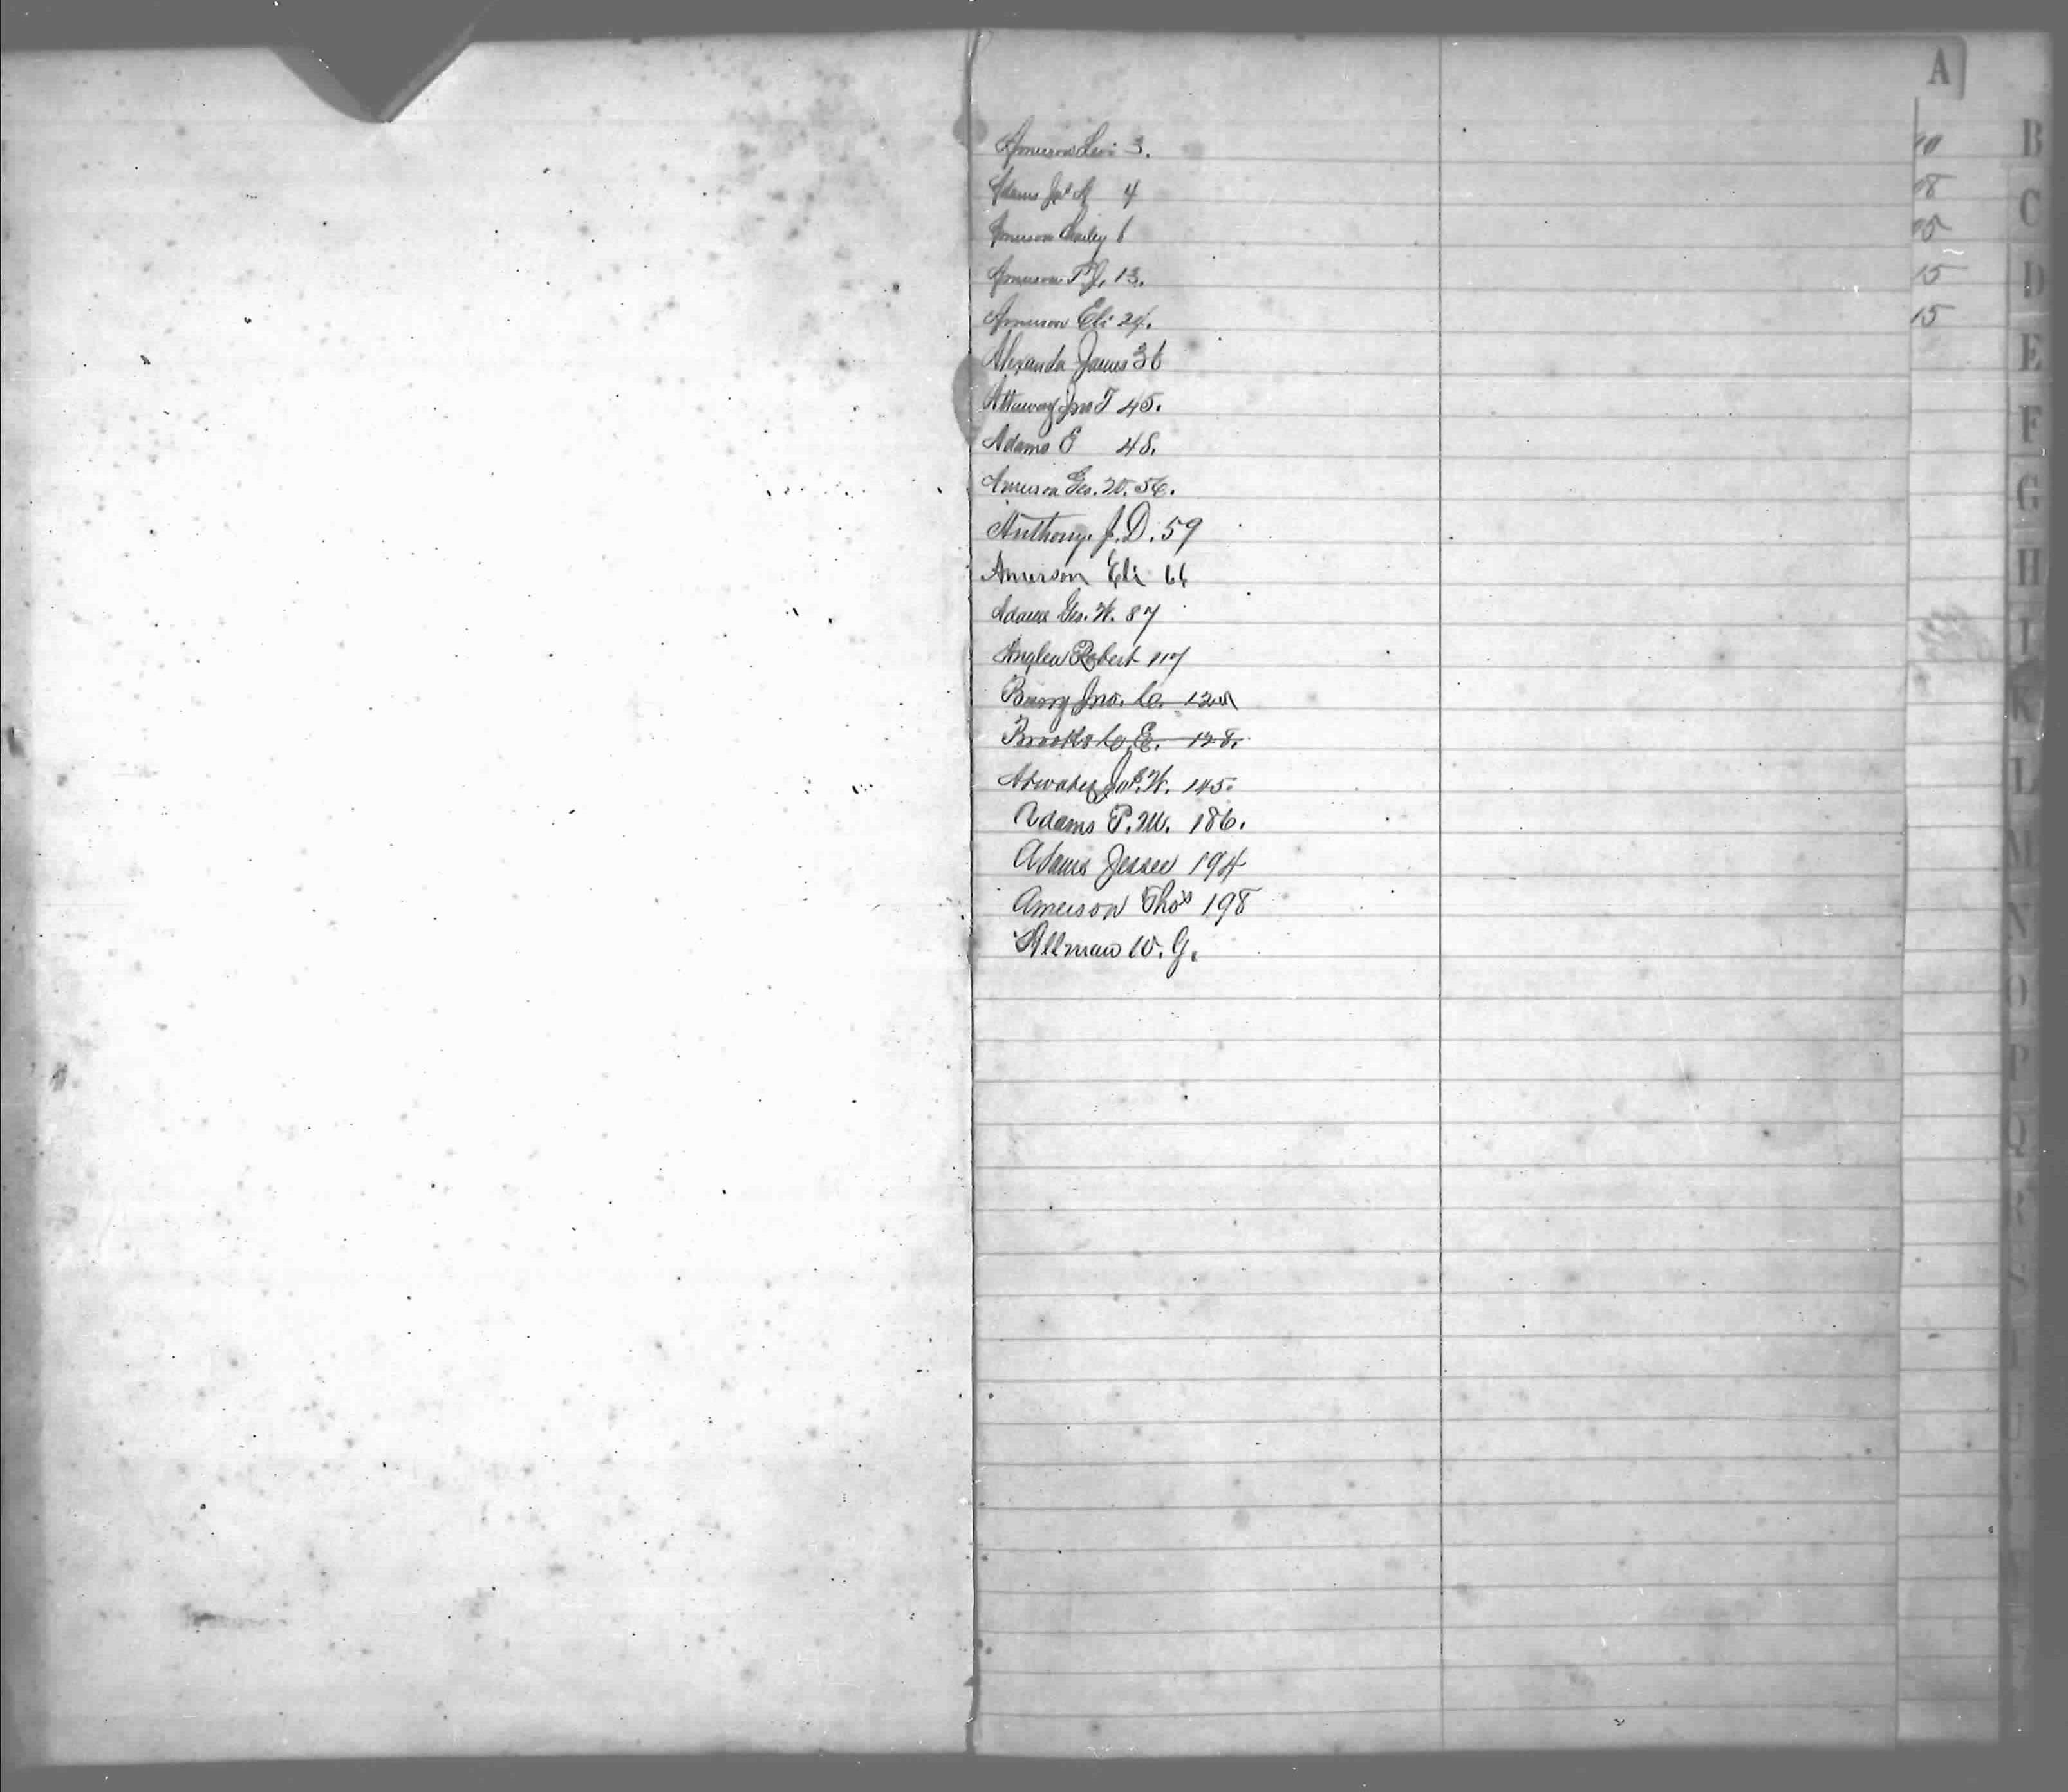 A
Amerson Levi 3.
Adams Jas A 4
Amerson 6
Amerson T J. 13.
Amerson Eli 24.
Alexander James 36
Attaway Jno T 45.
Adams E 48.
Amerson Geo. W. 56.
Anthony. J. D. 59
Amerson Eli 66
Adams Geo. W. 87
Anglen Robert 117
Barry Jno. C.
Brooks C. E. 128.
Atwater Jas. W. 145.
Adams P. M. 186.
Adams Jessee 194
Amerson Thos 198
Allman W. G.
15
15
B
C
D
E
F
G
H
I
K
L
M
N
O
P
Q
R